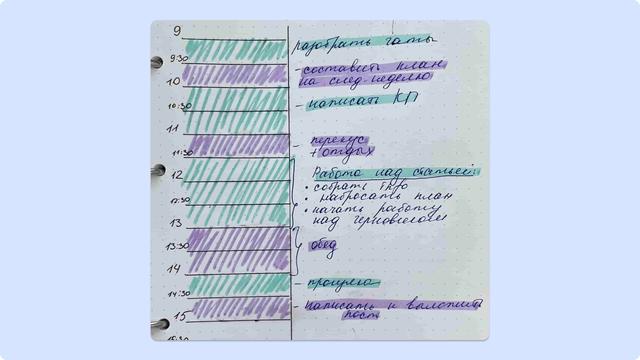 9
разобрать чаты
9:30
- составить план
на след. неделю
10
10:30
- написать КП
11
11:30
- перекус
+ отдых
12
Работа над статьей:
• собрать инфо
• набросать план
12:30
• начать работу
над черновиком
13
13:30
обед
14
- прогулка
14:30
- написать и выложить
пост
15